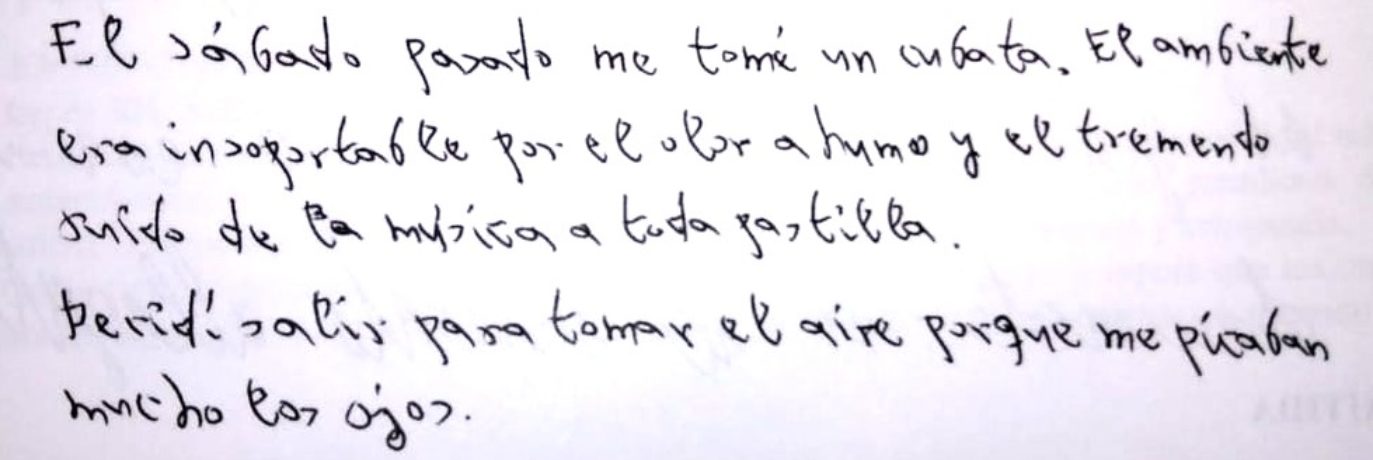 El sábado pasado me tomé un cubata. El ambiente
era insoportable por el olor a humo y el tremendo
ruido de la música a toda pastilla.
Decidí salir para tomar el aire porque me picaban
mucho los ojos.